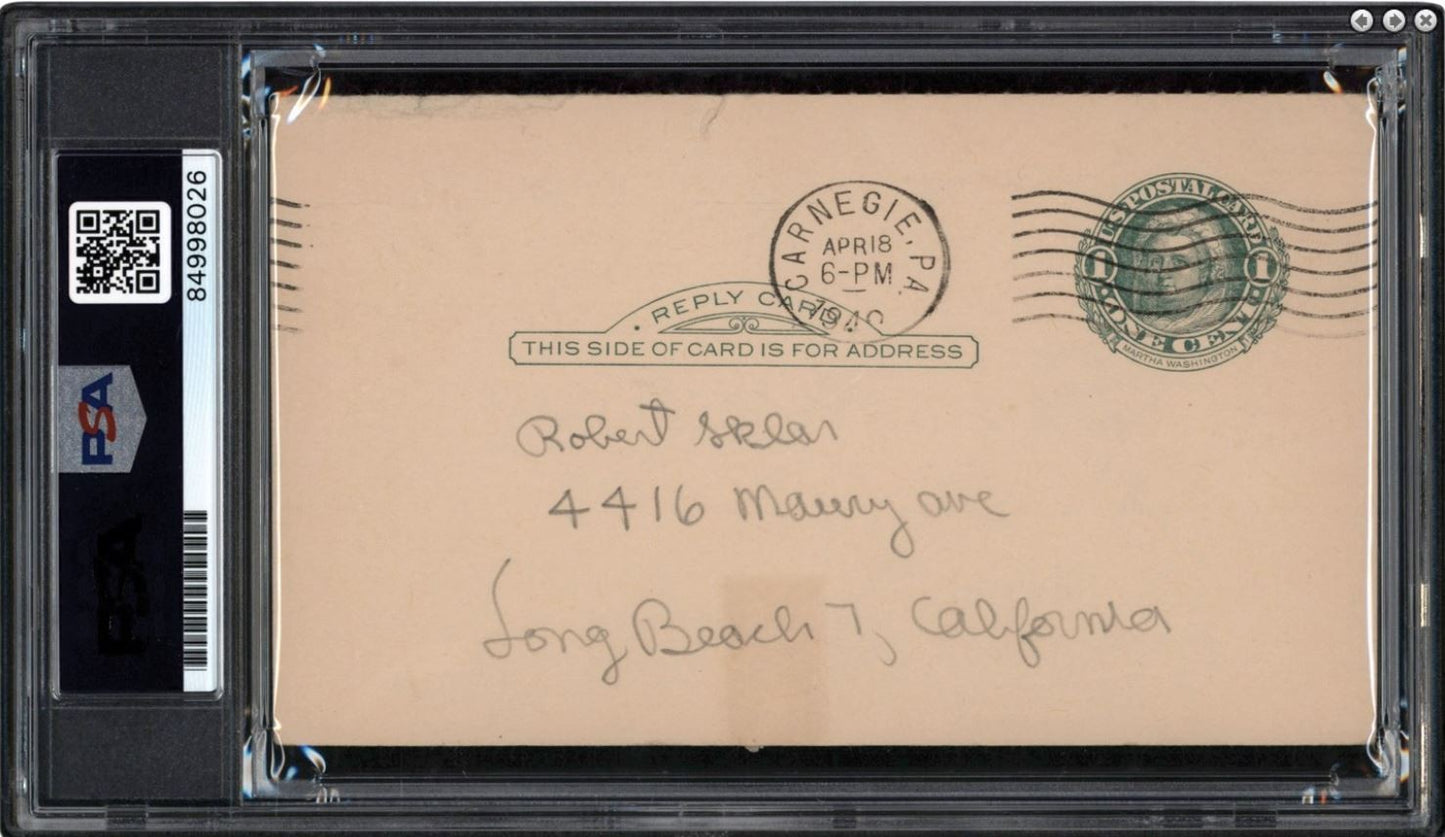 84998026
PSA
CARNEGIE, PA.
APR 18
6-PM
U.S. POSTAL CARD
1 1
ONE CENT
MARTHA WASHINGTON
REPLY CARD
THIS SIDE OF CARD IS FOR ADDRESS
Robert Sklar
4416 Maury ave
Long Beach 7, California